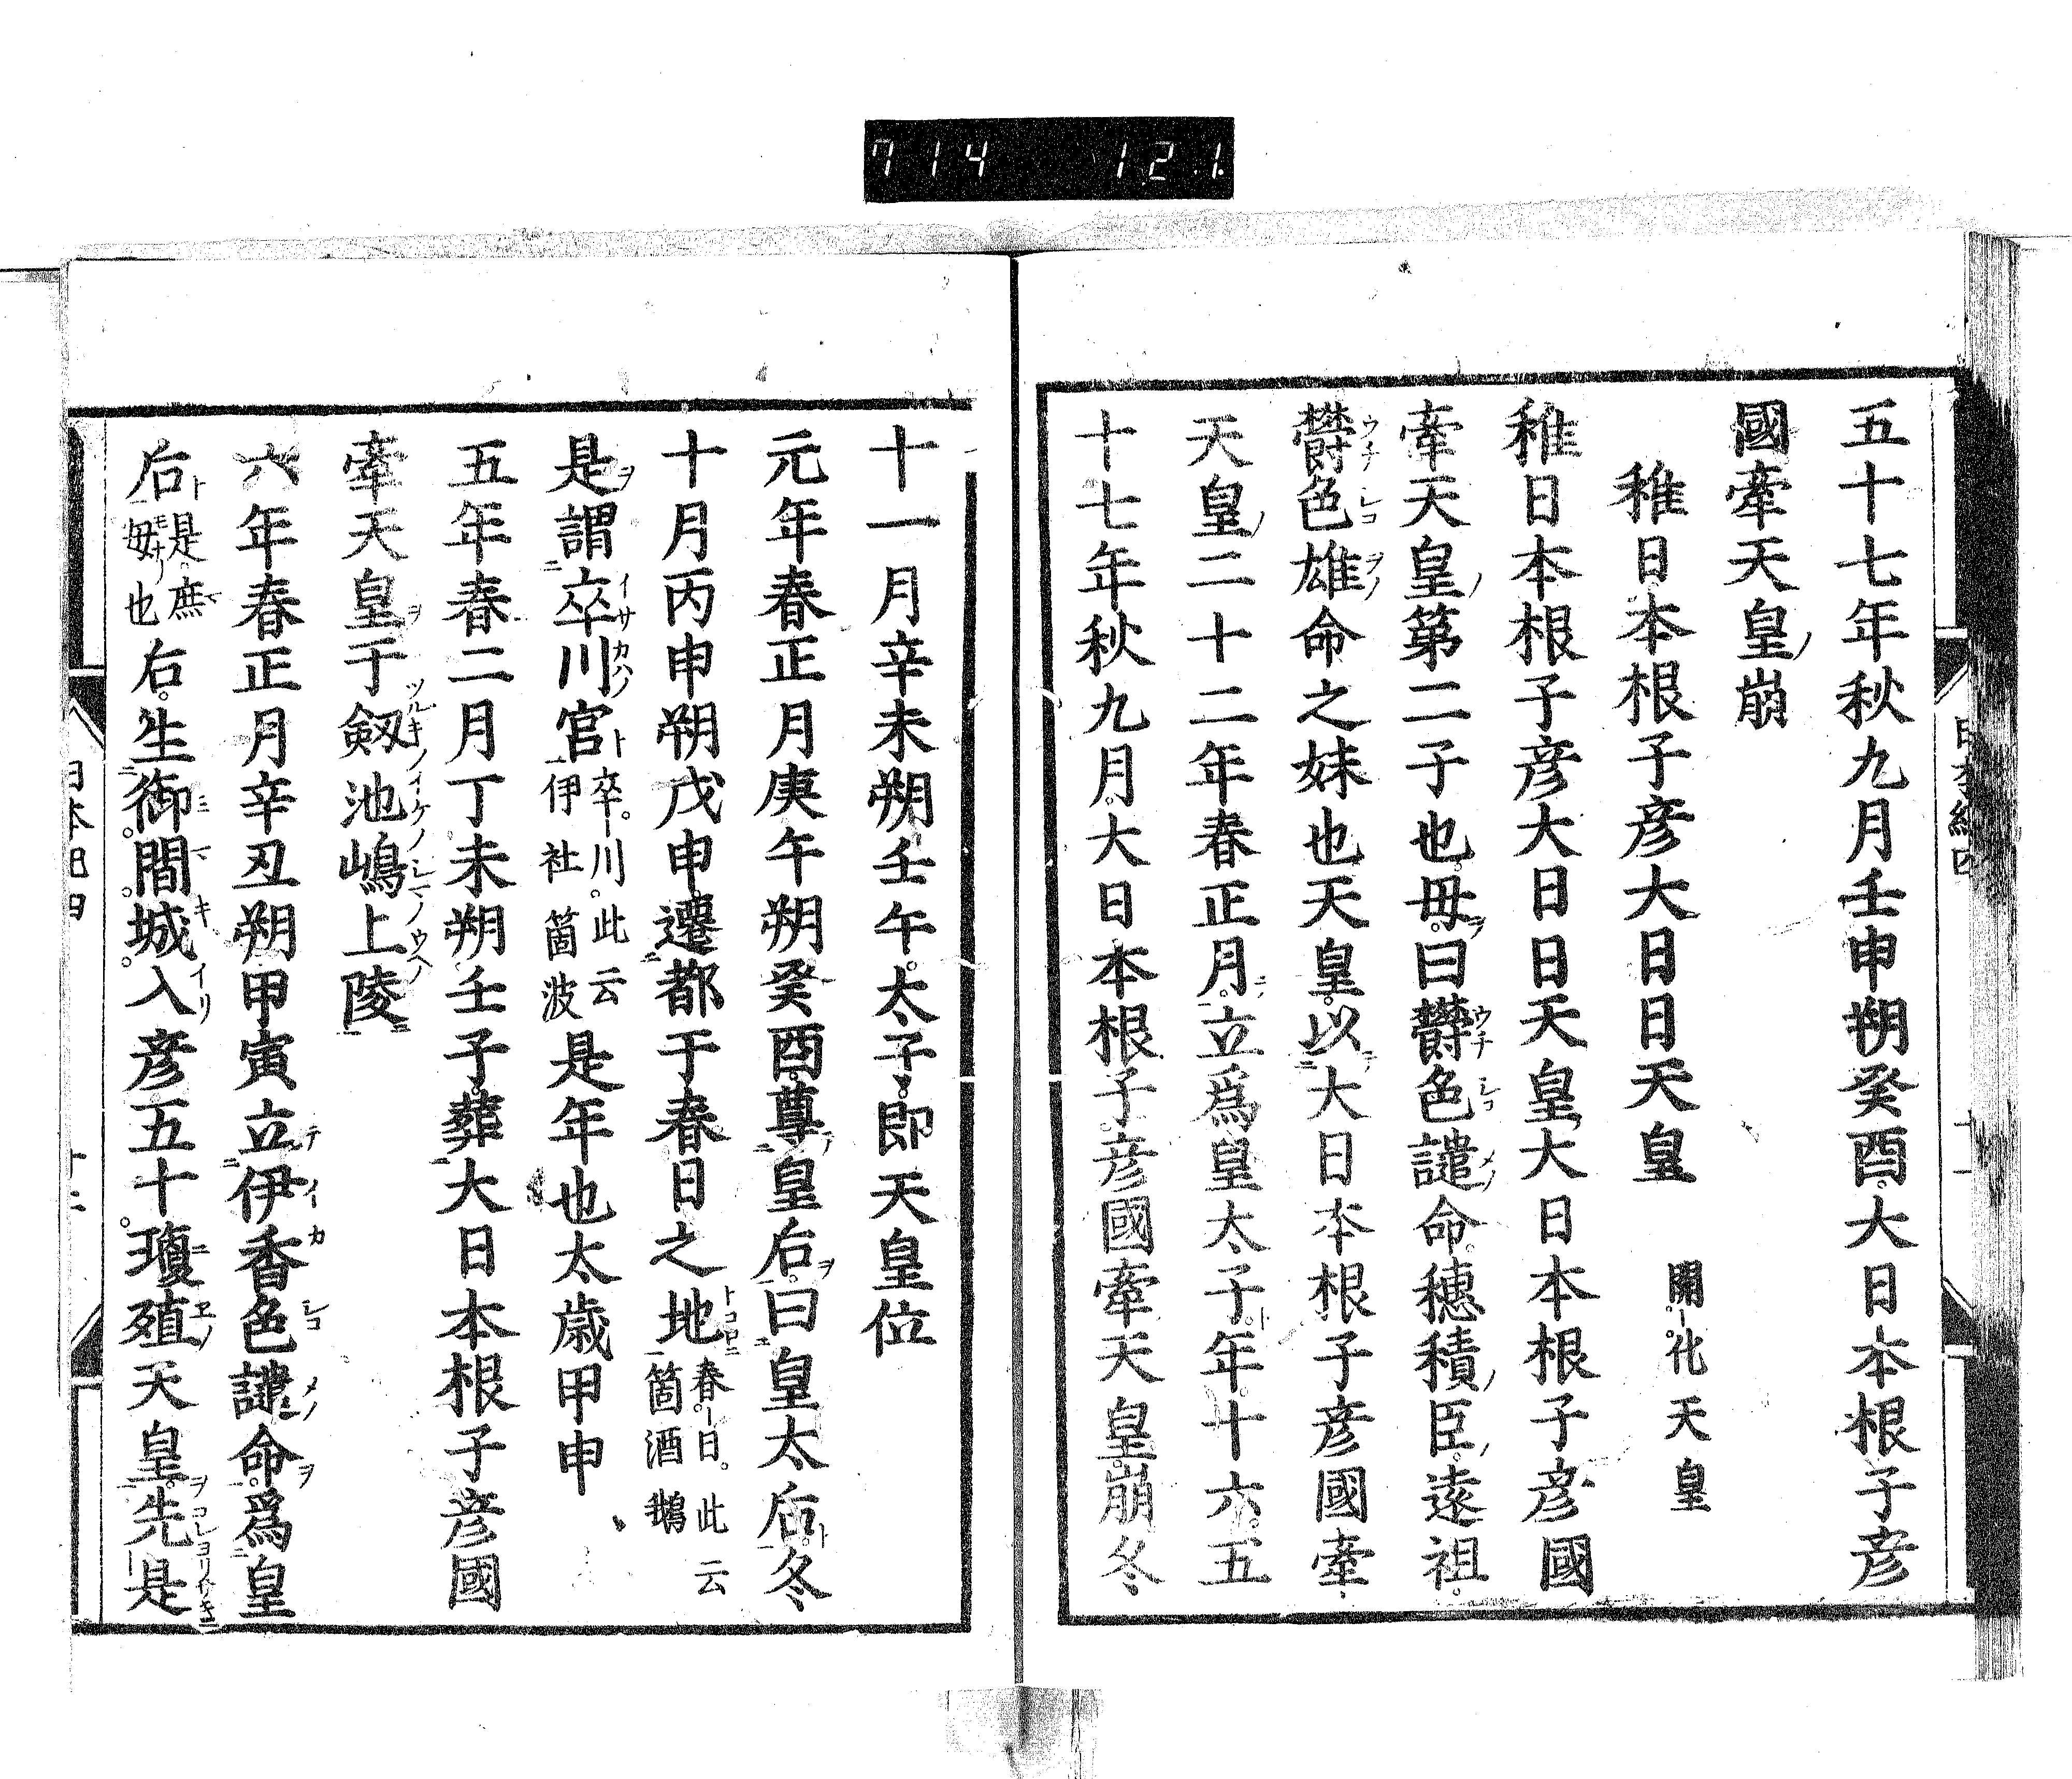 714 121
五十七年秋九月壬申朔癸酉大日本根子彦
國牽天皇崩
稚日本根子彦大日日天皇 開化天皇
稚日本根子彦大日日天皇大日本根子彦國
牽天皇第二子也母曰欝色謎命穗積臣遠祖
欝色雄命之妹也天皇以大日本根子彦國牽
天皇二十二年春正月立爲皇太子年十六五
十七年秋九月大日本根子彦國牽天皇崩冬
十一月辛未朔壬午太子即天皇位
元年春正月庚午朔癸酉尊皇后曰皇太后冬
十月丙申朔戊申遷都于春日之地春日此云箇酒鵝
是謂卒川宮卒川此云伊社箇波是年也太歳甲申
五年春二月丁未朔壬子葬大日本根子彦國
牽天皇于劔池嶋上陵
六年春正月辛丑朔甲寅立伊香色謎命爲皇
后是庶母也后生御間城入彦五十瓊殖天皇先是
日本紀四 十二